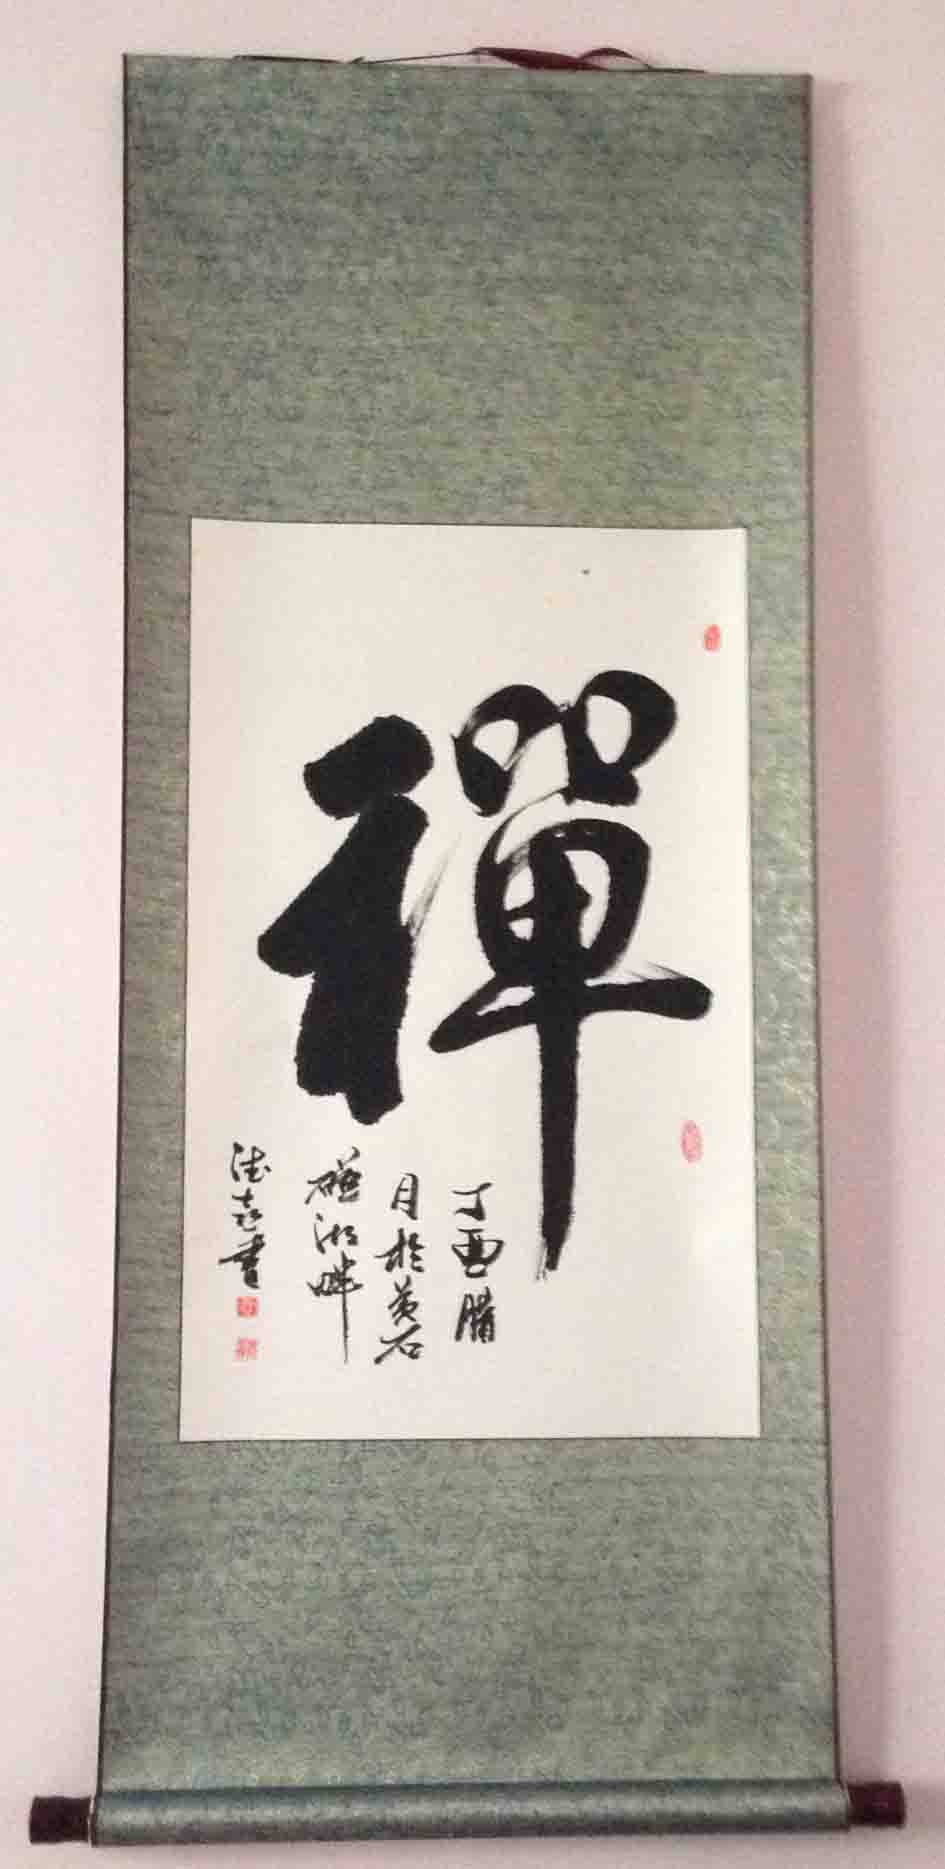 禪
丁酉臘
月於黃石
磁湖畔
德志書